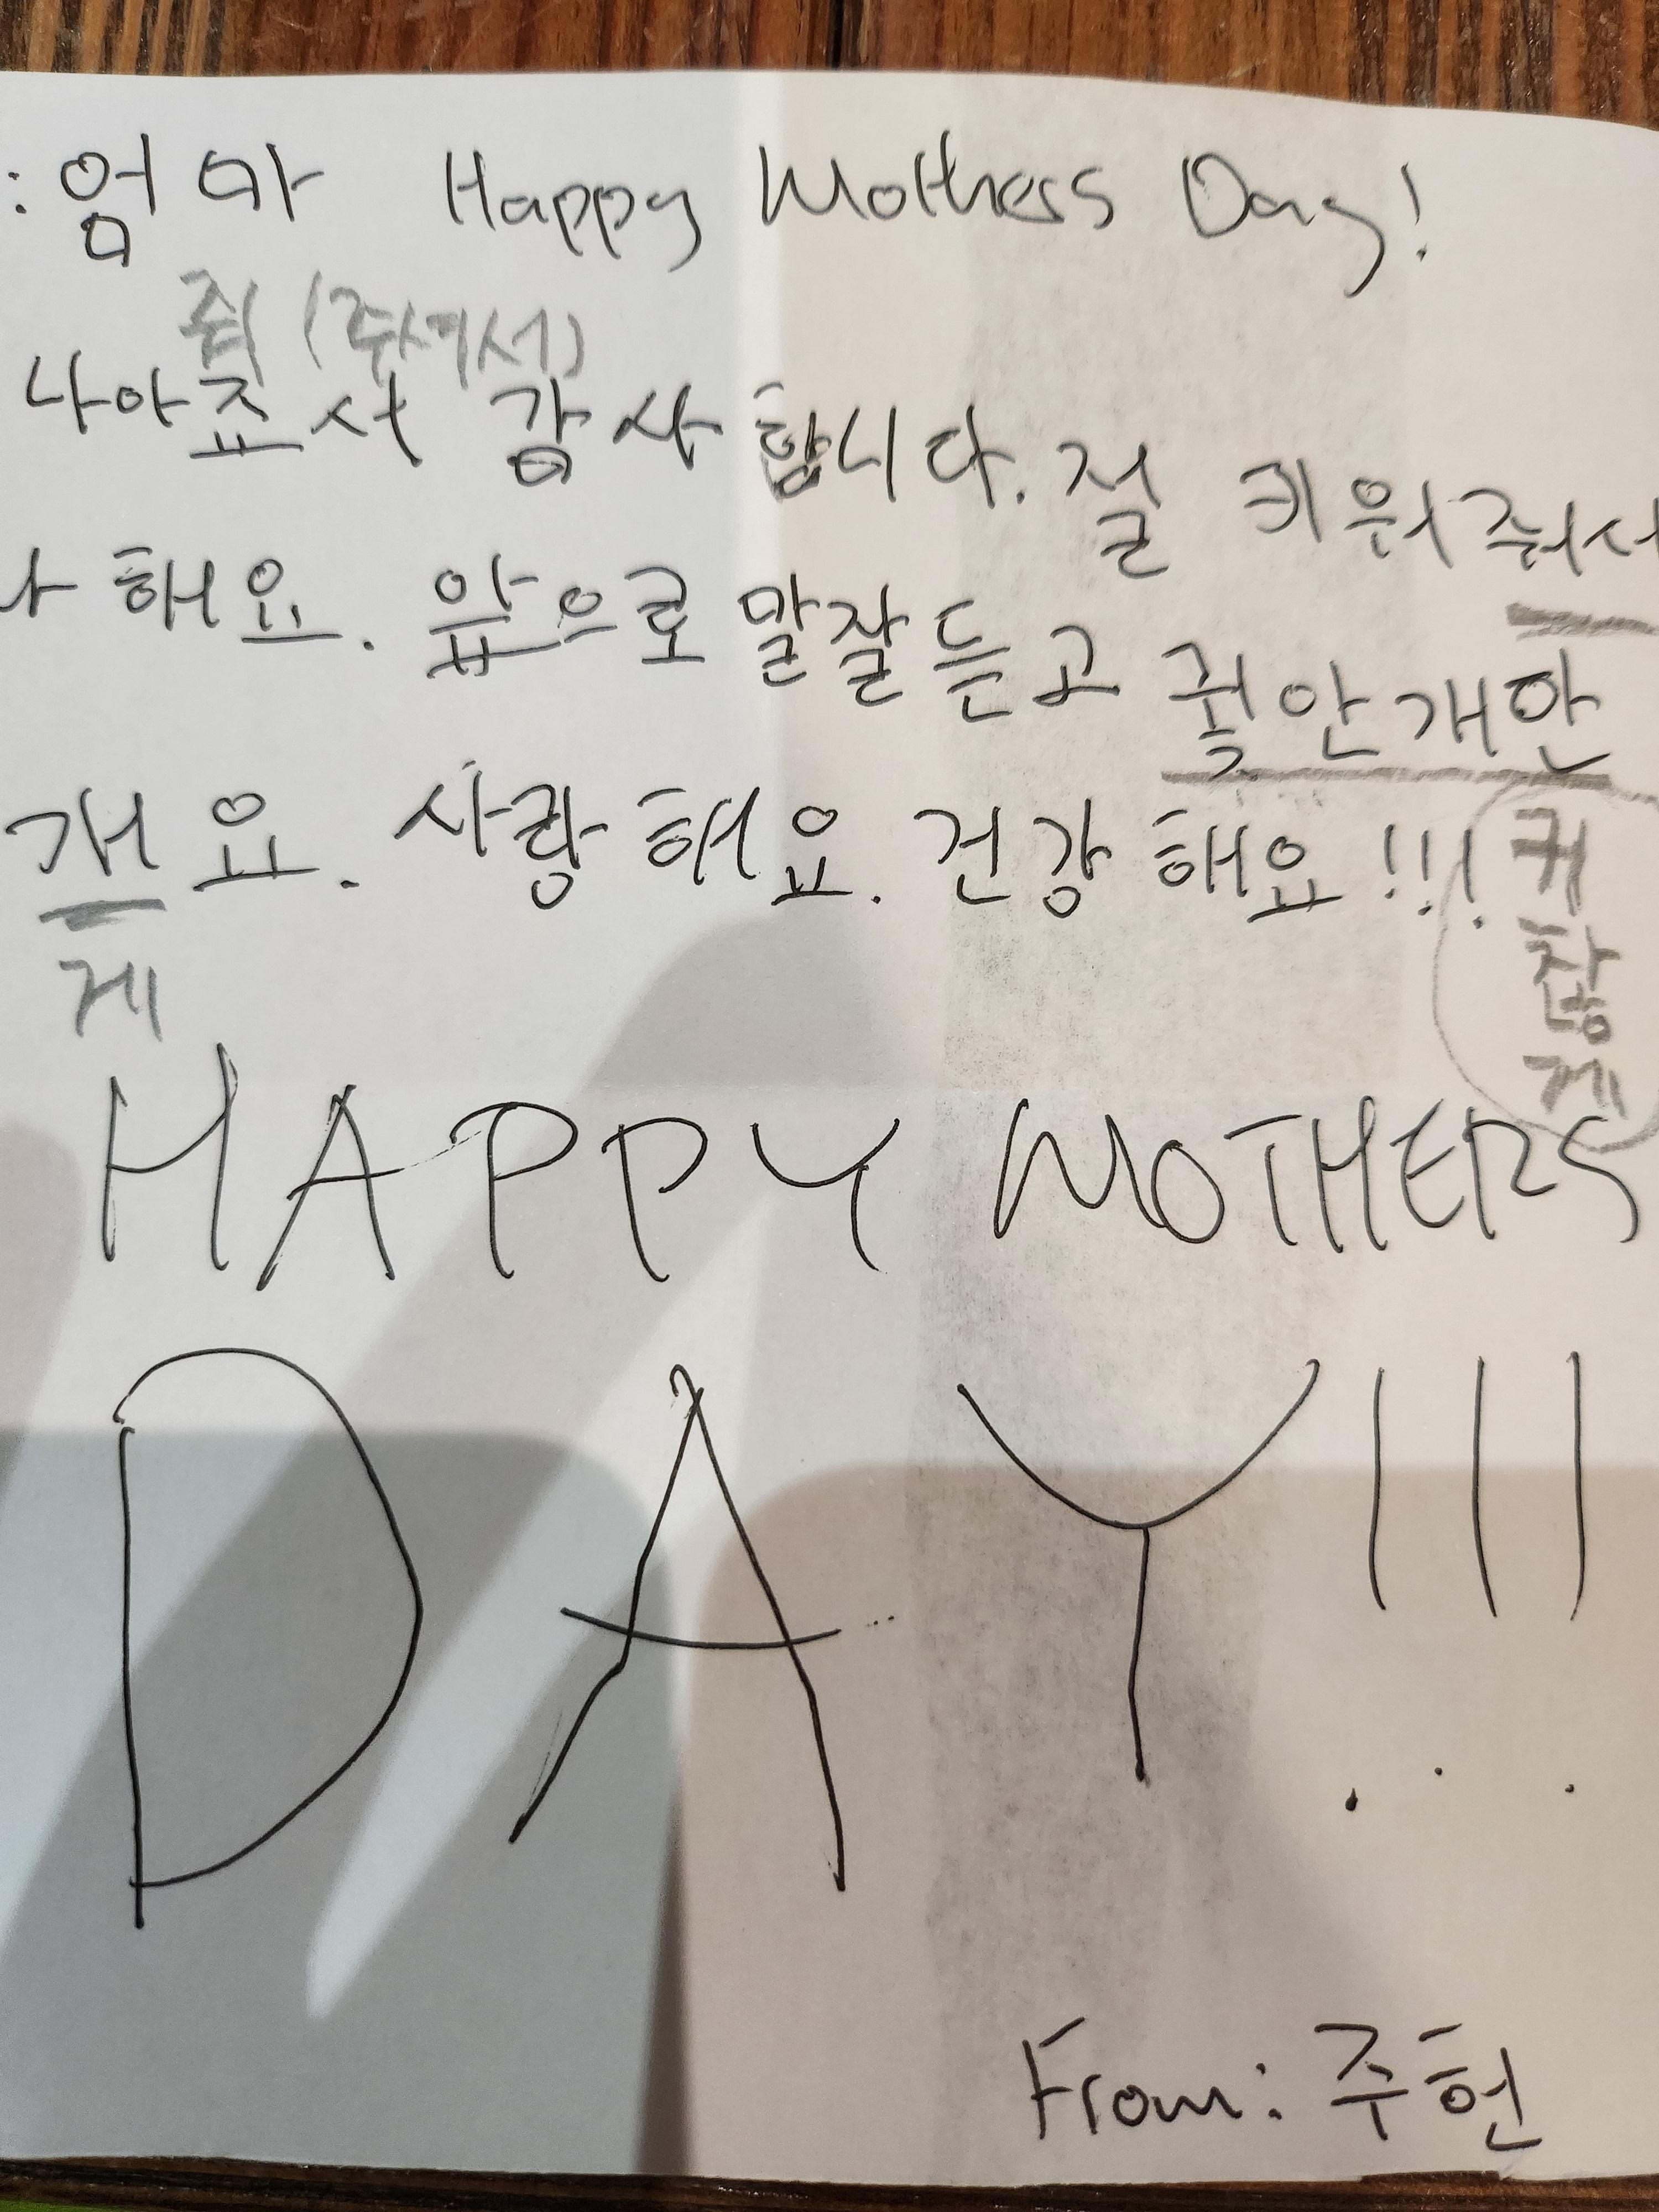 : 엄마 Happy Mothers Day!
줘 (주셔서)
나아죠서 감사합니다. 절 키워줘서
해요. 앞으로 말잘듣고 귗안개안
개요. 사랑해요. 건강해요!!!
게
귀
찮
게
HAPPY MOTHERS
DAY!!!
From: 주헌